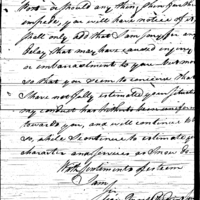 Work or should any thing then further
impede, you will have notice of it, I
shall only add that I am sorry for any
delay that may have caused injury
or embarrassment to you but more
so that you seem to conceive that
I have not fully estimated your
very conduct has hitherto been uniform
towards you, and will continue
so, while I continue to estimate your
character and services as I now do
With sentiments of esteem
I am
Sir